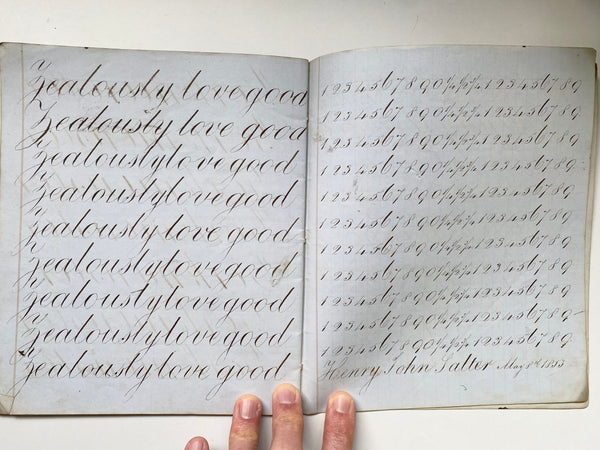 Zealously love good
Zealously love good
Zealously love good
Zealously love good
Zealously love good
Zealously love good
Zealously love good
Zealously love good
Zealously love good
1 2 3 4 5 6 7 8 9 0 ¼ ½ ¾ 1 2 3 4 5 6 7 8 9
1 2 3 4 5 6 7 8 9 0 ¼ ½ ¾ 1 2 3 4 5 6 7 8 9
1 2 3 4 5 6 7 8 9 0 ¼ ½ ¾ 1 2 3 4 5 6 7 8 9
1 2 3 4 5 6 7 8 9 0 ¼ ½ ¾ 1 2 3 4 5 6 7 8 9
1 2 3 4 5 6 7 8 9 0 ¼ ½ ¾ 1 2 3 4 5 6 7 8 9
1 2 3 4 5 6 7 8 9 0 ¼ ½ ¾ 1 2 3 4 5 6 7 8 9
1 2 3 4 5 6 7 8 9 0 ¼ ½ ¾ 1 2 3 4 5 6 7 8 9
1 2 3 4 5 6 7 8 9 0 ¼ ½ ¾ 1 2 3 4 5 6 7 8 9
1 2 3 4 5 6 7 8 9 0 ¼ ½ ¾ 1 2 3 4 5 6 7 8 9
1 2 3 4 5 6 7 8 9 0 ¼ ½ ¾ 1 2 3 4 5 6 7 8 9
1 2 3 4 5 6 7 8 9 0 ¼ ½ ¾ 1 2 3 4 5 6 7 8 9
Henry John Salter May 8th 1853